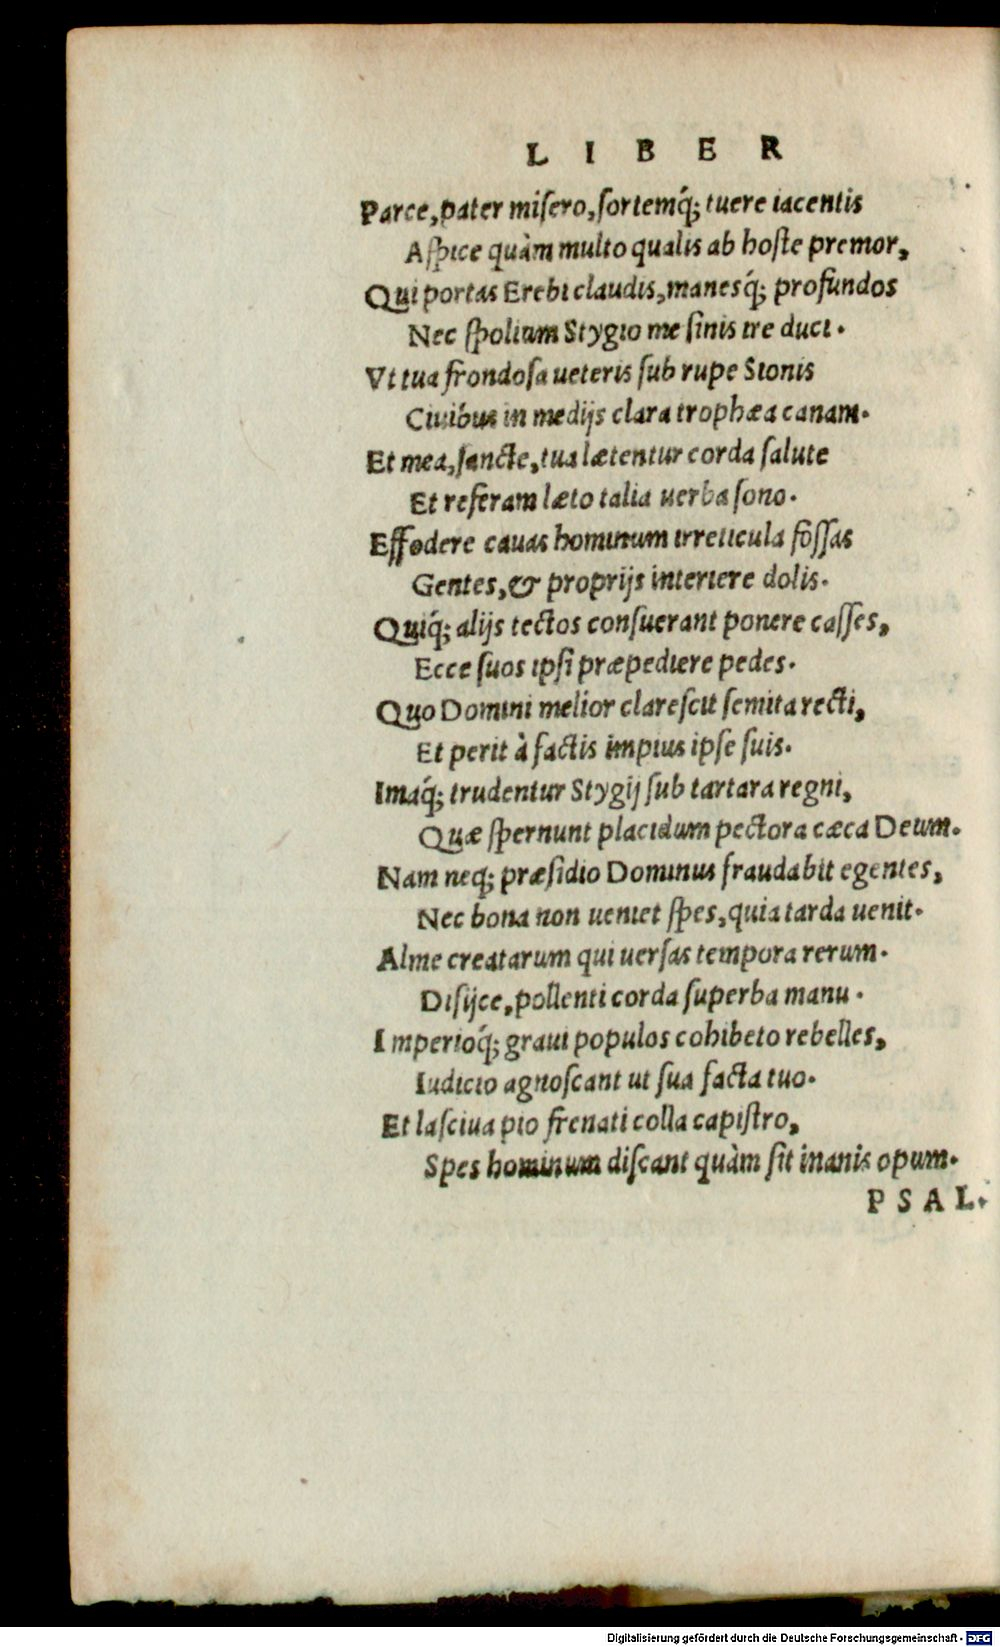 LIBER
Parce, pater misero, sortemq́; tuere iacentis
Aspice quàm multo qualis ab hoste premor,
Qui portas Erebi claudis, manesq́; profundos
Nec spolium Stygio me sinis ire duci.
Vt tua frondosa ueteris sub rupe Sionis
Ciuibus in medijs clara trophæa canam.
Et mea, sancte, tua lætentur corda salute
Et referam læto talia uerba sono.
Effodere cauas hominum irreticula fossas
Gentes, & proprijs interiere dolis.
Quiq́; alijs tectos consuerant ponere casses,
Ecce suos ipsi præpediere pedes.
Quo Domini melior clarescit semita recti,
Et perit à factis impius ipse suis.
Imaq́; trudentur Stygij sub tartara regni,
Quæ spernunt placidum pectora cæca Deum.
Nam neq; præsidio Dominus fraudabit egentes,
Nec bona non ueniet spes, quia tarda uenit.
Alme creatarum qui uersas tempora rerum.
Disijce, pollenti corda superba manu.
Imperioq́; graui populos cohibeto rebelles,
Iudicio agnoscant ut sua facta tuo.
Et lasciua pio frenati colla capistro,
Spes hominum discant quàm sit inanis opum.
PSAL.
Digitalisierung gefördert durch die Deutsche Forschungsgemeinschaft - DFG